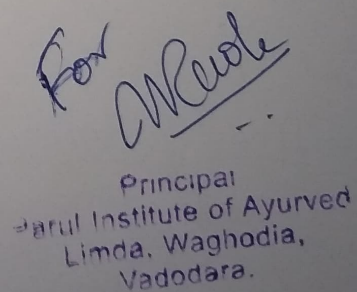 For
Principal
Parul Institute of Ayurved
Limda, Waghodia,
Vadodara.